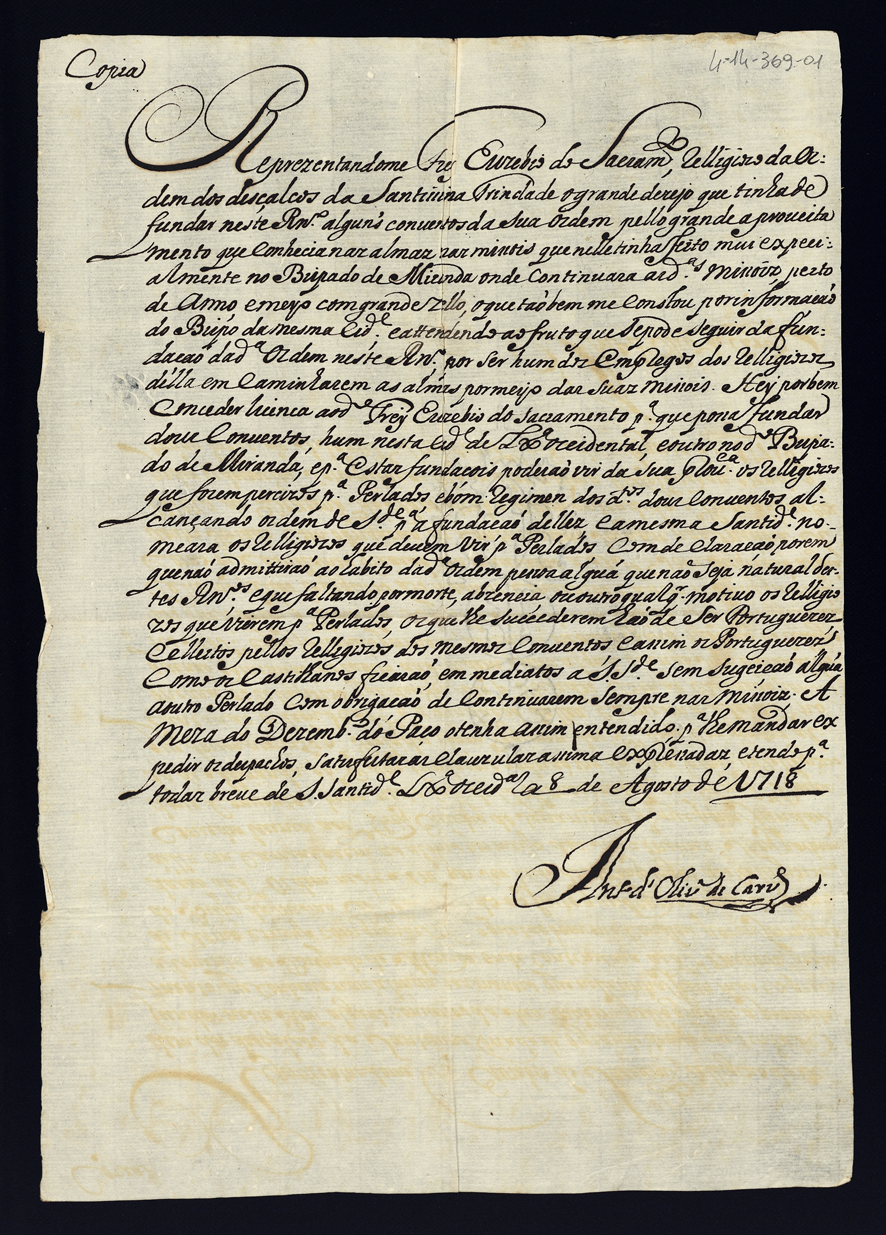 Copia
4-14-369-01
Reprezentandome Frey Euzebio do Sacramto, Relligiozo da Or:
dem dos descalços da Santissima Trindade o grande dezejo que tinha de
fundar neste Rno. alguns conventos da Sua Ordem pello grande aproveita
mento que conhecia nas almas nas missois que nelle tinha feito mui expeci:
almente no Bispado de Miranda onde Continuara as das. Missoiz, perto
de Anno e meyo com grande zello, o que taõbem me constou por informacaõ
do Bispo da mesma Cide. e attendendo ao fruto que Se pode seguir da fun:
dacaõ da da. Ordem neste Rno. por Ser hum dos Empregos dos Relligiozos
della em Caminharem as almas por meyo das Suas Missois. Hey por bem
Conceder licenca ao do. Frey Euzebio do Sacramento pa. que possa fundar
dous Conventos, hum nesta Cide. de Lxa. Occidental, e outro no do. Bispa-
do de Miranda, e pa. Estas fundacois poderaõ vir da Sua Prouca. os Relligiozos
que forem percizos pa. Perlados e bom Regimen dos dos. dous Conventos, al-
cançando ordem de S. Sde. pa. a fundacaõ delles, e a mesma Santide. no-
meara os Relligiozos que devem vir pa. Perlados Com declaracaõ porem
que naõ admittiraõ ao habito da da. Ordem pessoa algũa que naõ seja natural des-
tes Rnos. e que faltando por morte, abzencia ou outro qualqr. motivo os Relligio
zos que vierem pa. Perlados, os que lhe sucederem haõ de Ser Portuguezes
Celleitos pellos Relligiozos, dos mesmos Conventos e assim os Portuguezes
Como os Castilhanos ficaraõ, em mediatos a S. Sde. sem sugeicaõ algũa
a outro Perlado Com obrigacaõ de Continuarem Sempre nas Missoiz. A
Meza do Dezembo. do Paco o tenha assim entendido. pa. lhe mandar ex
pedir os despachos, satisfeitas as Clauzulas assima Expressadas, e tendo pa.
todas breve de S. Santide. Lxa. Occidal. a 8 de Agosto de 1718
Anto. d' Olivra. de Carvo.